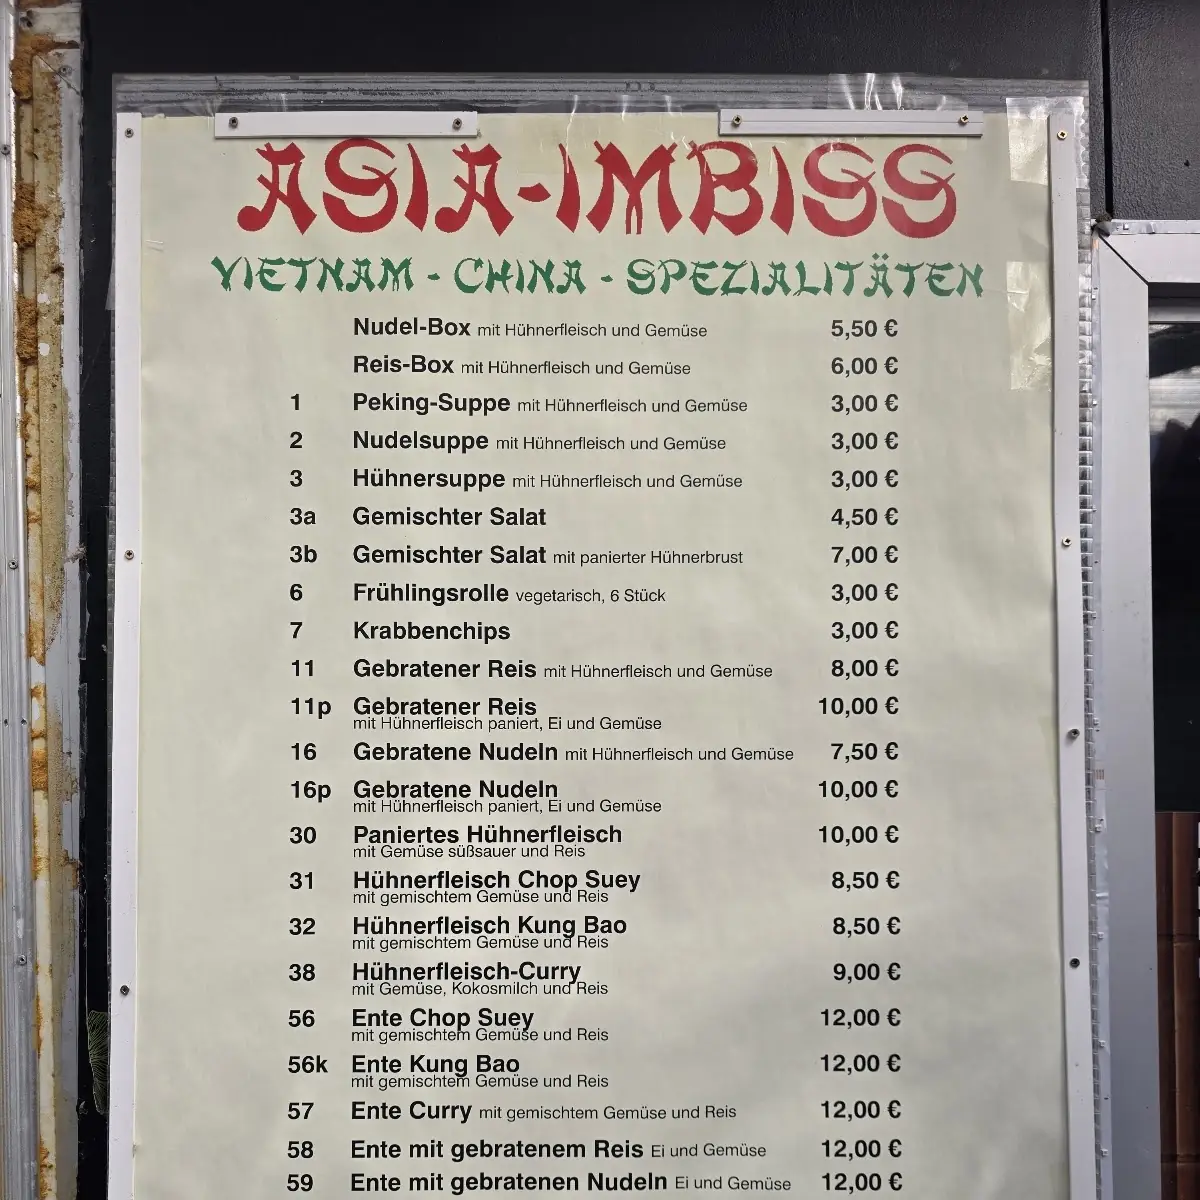 ASIA-IMBISS
VIETNAM - CHINA - SPEZIALITÄTEN
Nudel-Box mit Hühnerfleisch und Gemüse 5,50 €
Reis-Box mit Hühnerfleisch und Gemüse 6,00 €
1 Peking-Suppe mit Hühnerfleisch und Gemüse 3,00 €
2 Nudelsuppe mit Hühnerfleisch und Gemüse 3,00 €
3 Hühnersuppe mit Hühnerfleisch und Gemüse 3,00 €
3a Gemischter Salat 4,50 €
3b Gemischter Salat mit panierter Hühnerbrust 7,00 €
6 Frühlingsrolle vegetarisch, 6 Stück 3,00 €
7 Krabbenchips 3,00 €
11 Gebratener Reis mit Hühnerfleisch und Gemüse 8,00 €
11p Gebratener Reis 10,00 €
mit Hühnerfleisch paniert, Ei und Gemüse
16 Gebratene Nudeln mit Hühnerfleisch und Gemüse 7,50 €
16p Gebratene Nudeln 10,00 €
mit Hühnerfleisch paniert, Ei und Gemüse
30 Paniertes Hühnerfleisch 10,00 €
mit Gemüse süßsauer und Reis
31 Hühnerfleisch Chop Suey 8,50 €
mit gemischtem Gemüse und Reis
32 Hühnerfleisch Kung Bao 8,50 €
mit gemischtem Gemüse und Reis
38 Hühnerfleisch-Curry 9,00 €
mit Gemüse, Kokosmilch und Reis
56 Ente Chop Suey 12,00 €
mit gemischtem Gemüse und Reis
56k Ente Kung Bao 12,00 €
mit gemischtem Gemüse und Reis
57 Ente Curry mit gemischtem Gemüse und Reis 12,00 €
58 Ente mit gebratenem Reis Ei und Gemüse 12,00 €
59 Ente mit gebratenen Nudeln Ei und Gemüse 12,00 €